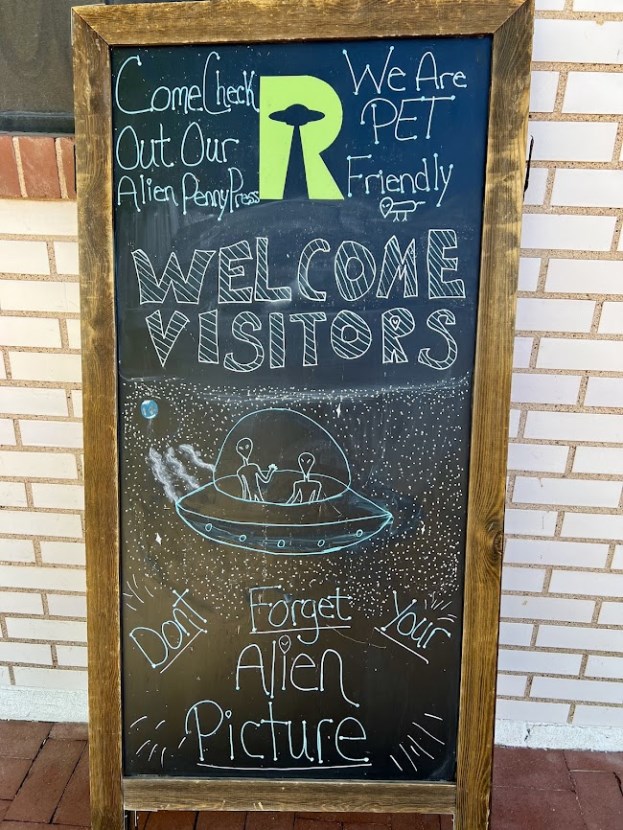 Come Check
Out Our
Alien Penny Press
R
We Are
PET
Friendly
WELCOME
VISITORS
Don't Forget Your
Alien
Picture